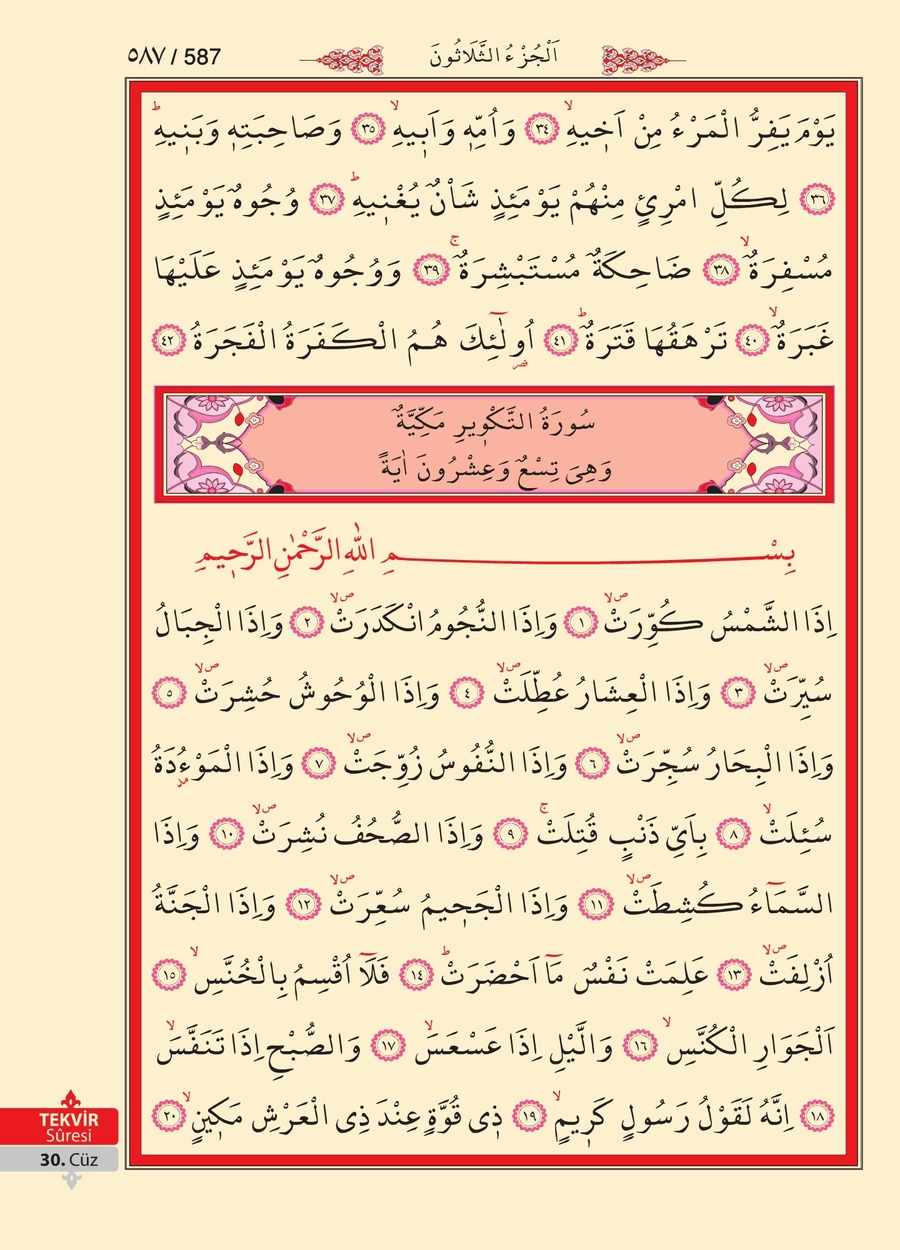 ٥٨٧ / 587
اَلْجُزْءُ الثَّلَاثُونَ
يَوْمَ يَفِرُّ الْمَرْءُ مِنْ اَخ۪يهِۙ ﴿٣٤﴾ وَاُمِّه۪ وَاَب۪يهِۙ ﴿٣٥﴾ وَصَاحِبَتِه۪ وَبَن۪يهِۜ
﴿٣٦﴾ لِكُلِّ امْرِئٍ مِنْهُمْ يَوْمَئِذٍ شَأْنٌ يُغْن۪يهِۜ ﴿٣٧﴾ وُجُوهٌ يَوْمَئِذٍ
مُسْفِرَةٌۙ ﴿٣٨﴾ ضَاحِكَةٌ مُسْتَبْشِرَةٌۚ ﴿٣٩﴾ وَوُجُوهٌ يَوْمَئِذٍ عَلَيْهَا
غَبَرَةٌۙ ﴿٤٠﴾ تَرْهَقُهَا قَتَرَةٌۜ ﴿٤١﴾ اُو۬لٰٓئِكَ هُمُ الْكَفَرَةُ الْفَجَرَةُ ﴿٤٢﴾
سُورَةُ التَّكْو۪يرِ مَكِّيَّةٌ
وَهِيَ تِسْعٌ وَعِشْرُونَ اٰيَةً
بِسْمِ اللّٰهِ الرَّحْمٰنِ الرَّح۪يمِ
اِذَا الشَّمْسُ كُوِّرَتْۖۙ ﴿١﴾ وَاِذَا النُّجُومُ انْكَدَرَتْۖۙ ﴿٢﴾ وَاِذَا الْجِبَالُ
سُيِّرَتْۖۙ ﴿٣﴾ وَاِذَا الْعِشَارُ عُطِّلَتْۖۙ ﴿٤﴾ وَاِذَا الْوُحُوشُ حُشِرَتْۖۙ ﴿٥﴾
وَاِذَا الْبِحَارُ سُجِّرَتْۖۙ ﴿٦﴾ وَاِذَا النُّفُوسُ زُوِّجَتْۖۙ ﴿٧﴾ وَاِذَا الْمَوْءُ۫دَةُ
سُئِلَتْۙ ﴿٨﴾ بِاَيِّ ذَنْبٍ قُتِلَتْۚ ﴿٩﴾ وَاِذَا الصُّحُفُ نُشِرَتْۖۙ ﴿١٠﴾ وَاِذَا
السَّمَٓاءُ كُشِطَتْۖۙ ﴿١١﴾ وَاِذَا الْجَح۪يمُ سُعِّرَتْۖۙ ﴿١٢﴾ وَاِذَا الْجَنَّةُ
اُزْلِفَتْۖۙ ﴿١٣﴾ عَلِمَتْ نَفْسٌ مَٓا اَحْضَرَتْۜ ﴿١٤﴾ فَلَٓا اُقْسِمُ بِالْخُنَّسِۙ ﴿١٥﴾
اَلْجَوَارِ الْكُنَّسِۙ ﴿١٦﴾ وَالَّيْلِ اِذَا عَسْعَسَۙ ﴿١٧﴾ وَالصُّبْحِ اِذَا تَنَفَّسَۙ
﴿١٨﴾ اِنَّهُ لَقَوْلُ رَسُولٍ كَر۪يمٍۙ ﴿١٩﴾ ذ۪ي قُوَّةٍ عِنْدَ ذِي الْعَرْشِ مَك۪ينٍۙ ﴿٢٠﴾
TEKVİR
Sûresi
30. Cüz